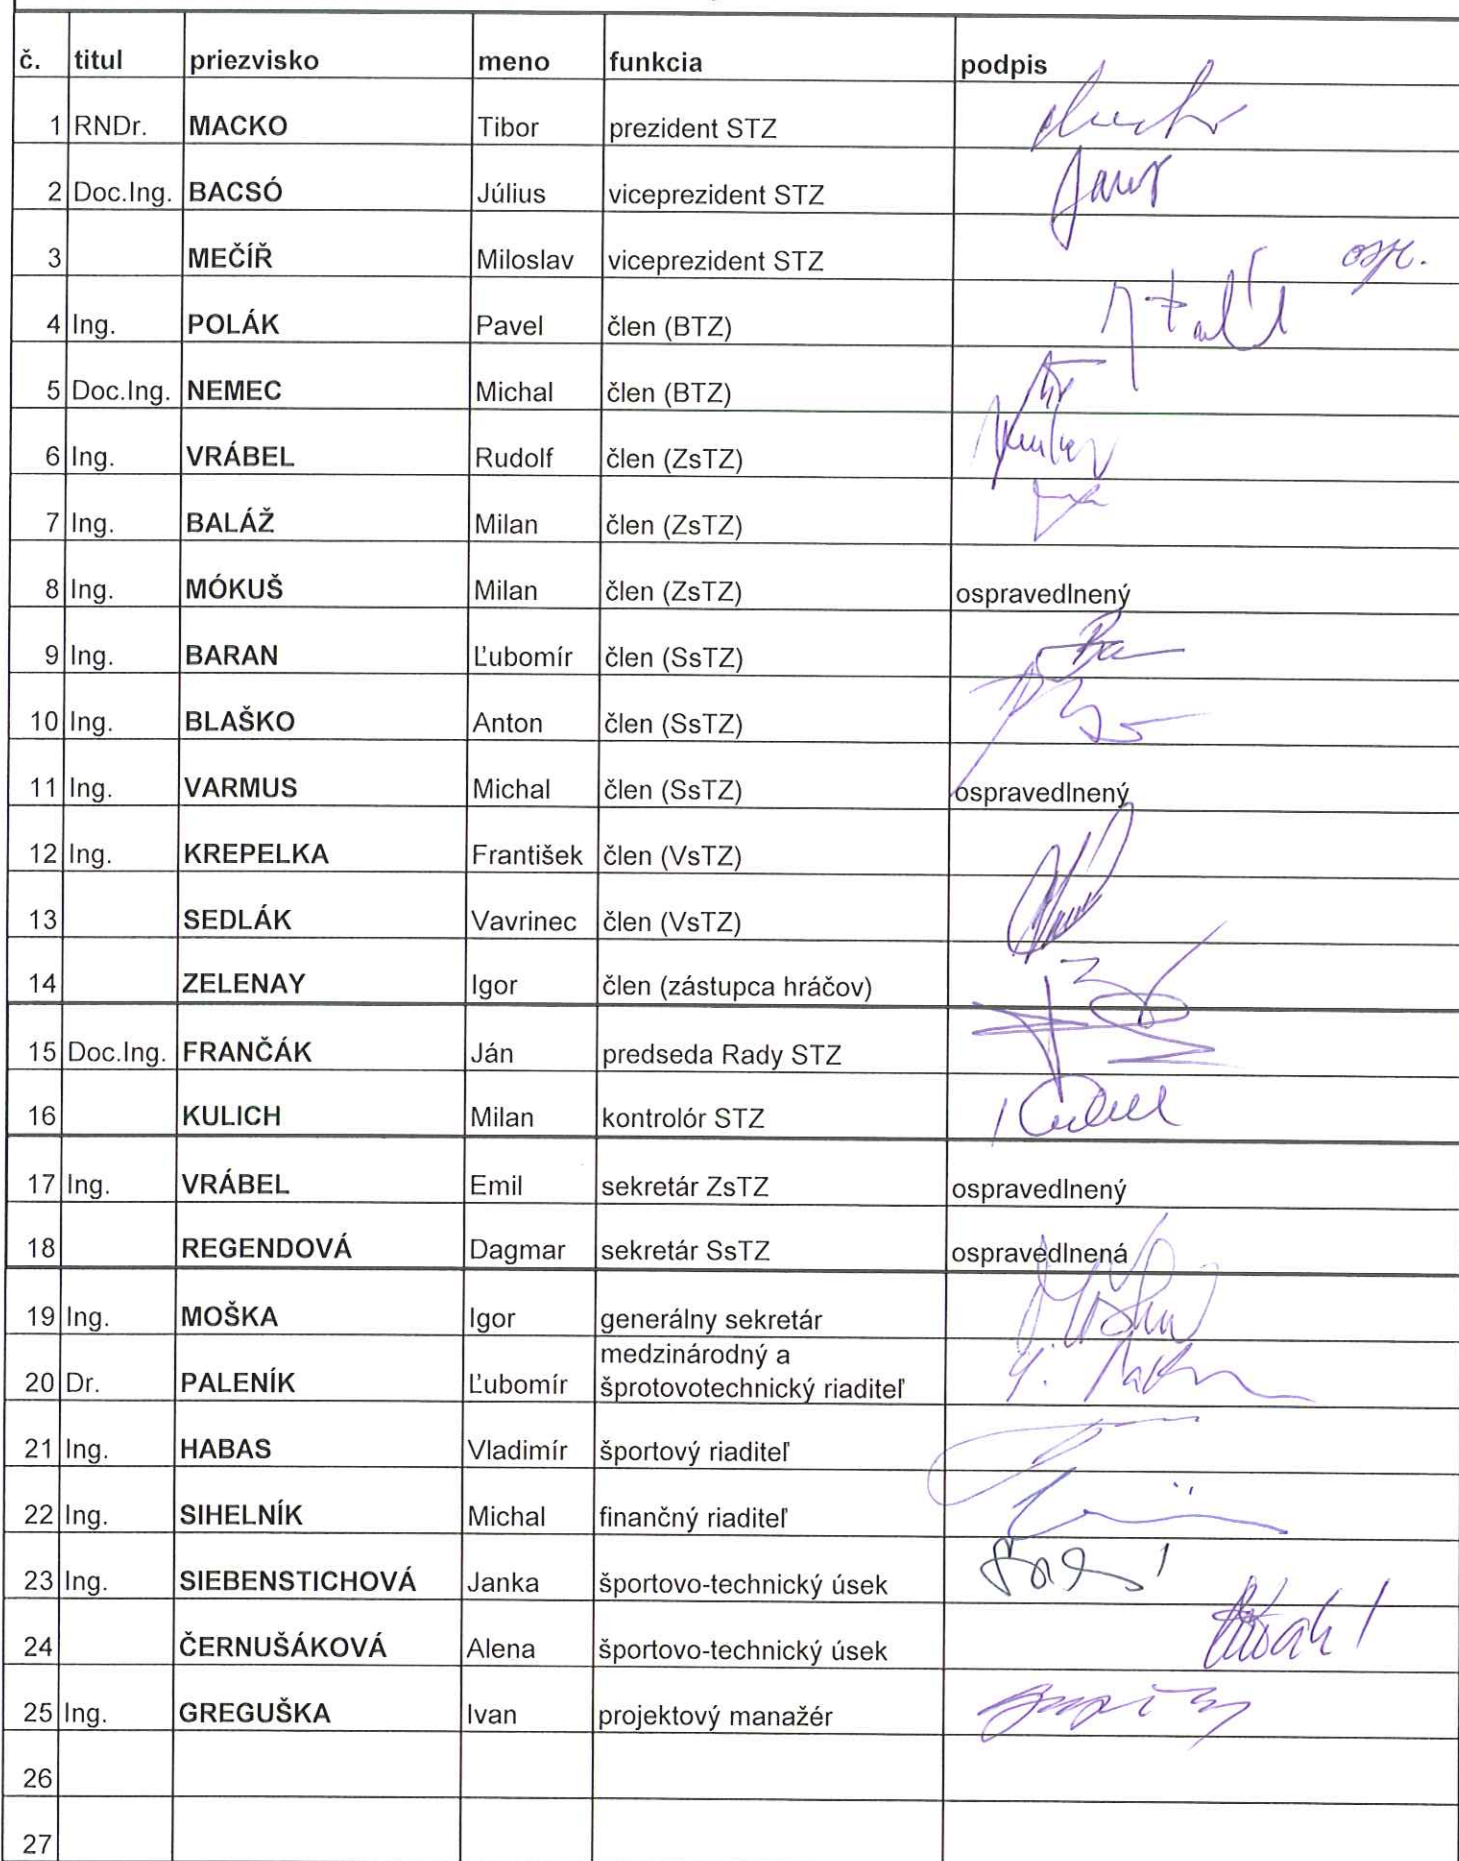 č. titul priezvisko meno funkcia podpis
1 RNDr. MACKO Tibor prezident STZ
2 Doc.Ing. BACSÓ Július viceprezident STZ
3 MEČÍŘ Miloslav viceprezident STZ osp.
4 Ing. POLÁK Pavel člen (BTZ)
5 Doc.Ing. NEMEC Michal člen (BTZ)
6 Ing. VRÁBEL Rudolf člen (ZsTZ)
7 Ing. BALÁŽ Milan člen (ZsTZ)
8 Ing. MÓKUŠ Milan člen (ZsTZ) ospravedlnený
9 Ing. BARAN Ľubomír člen (SsTZ)
10 Ing. BLAŠKO Anton člen (SsTZ)
11 Ing. VARMUS Michal člen (SsTZ) ospravedlnený
12 Ing. KREPELKA František člen (VsTZ)
13 SEDLÁK Vavrinec člen (VsTZ)
14 ZELENAY Igor člen (zástupca hráčov)
15 Doc.Ing. FRANČÁK Ján predseda Rady STZ
16 KULICH Milan kontrolór STZ
17 Ing. VRÁBEL Emil sekretár ZsTZ ospravedlnený
18 REGENDOVÁ Dagmar sekretár SsTZ ospravedlnená
19 Ing. MOŠKA Igor generálny sekretár
medzinárodný a
20 Dr. PALENÍK Ľubomír šprotovotechnický riaditeľ
21 Ing. HABAS Vladimír športový riaditeľ
22 Ing. SIHELNÍK Michal finančný riaditeľ
23 Ing. SIEBENSTICHOVÁ Janka športovo-technický úsek
24 ČERNUŠÁKOVÁ Alena športovo-technický úsek
25 Ing. GREGUŠKA Ivan projektový manažér
26
27